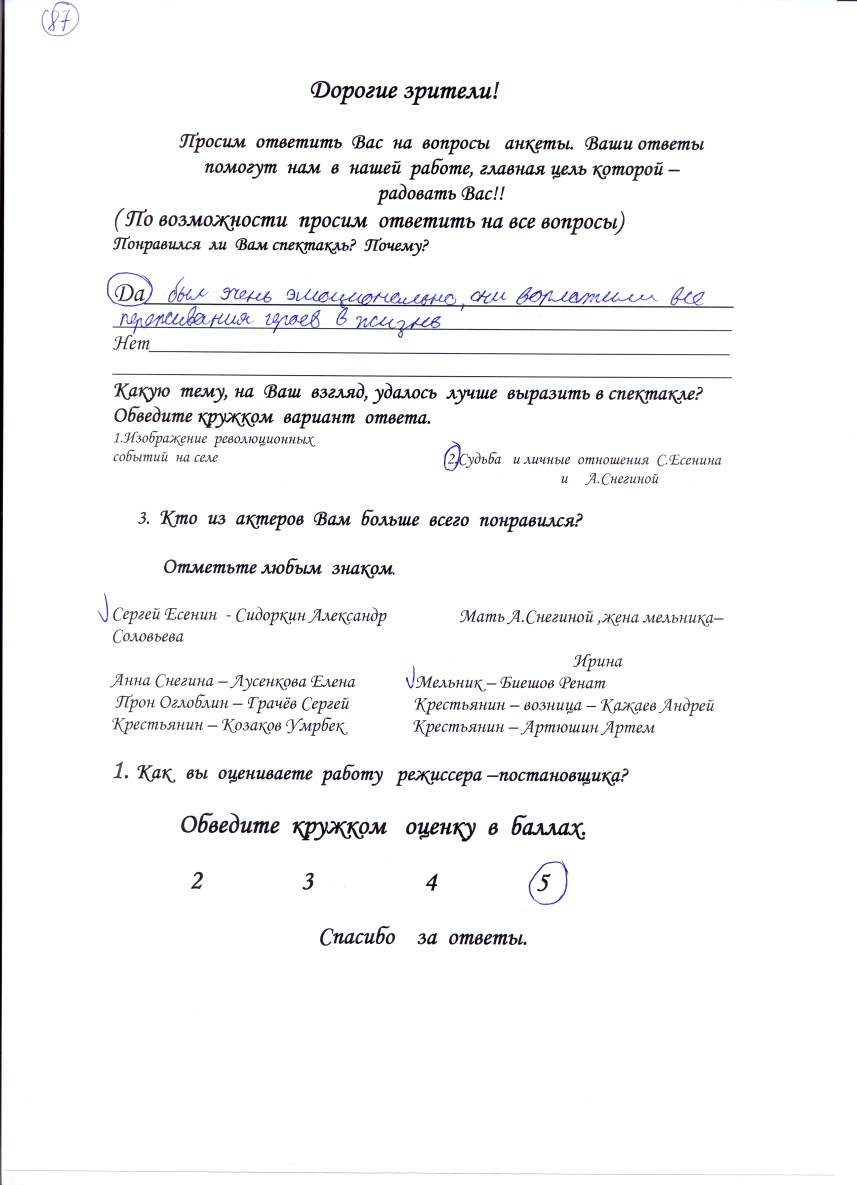 87
Дорогие зрители!
Просим ответить Вас на вопросы анкеты. Ваши ответы
помогут нам в нашей работе, главная цель которой –
радовать Вас!!
( По возможности просим ответить на все вопросы)
Понравился ли Вам спектакль? Почему?
Да был очень эмоционально, они все
переживания героев в жизнь
Нет
Какую тему, на Ваш взгляд, удалось лучше выразить в спектакле?
Обведите кружком вариант ответа.
1.Изображение революционных
событий на селе
2.Судьба и личные отношения С.Есенина
и А.Снегиной
3. Кто из актеров Вам больше всего понравился?
Отметьте любым знаком.
Сергей Есенин - Сидоркин Александр Мать А.Снегиной ,жена мельника–
Соловьева
Ирина
Анна Снегина – Лусенкова Елена Мельник – Биешов Ренат
Прон Оглоблин – Грачёв Сергей Крестьянин – возница – Кажаев Андрей
Крестьянин – Козаков Умрбек Крестьянин – Артюшин Артем
1. Как вы оцениваете работу режиссера –постановщика?
Обведите кружком оценку в баллах.
2 3 4 5
Спасибо за ответы.